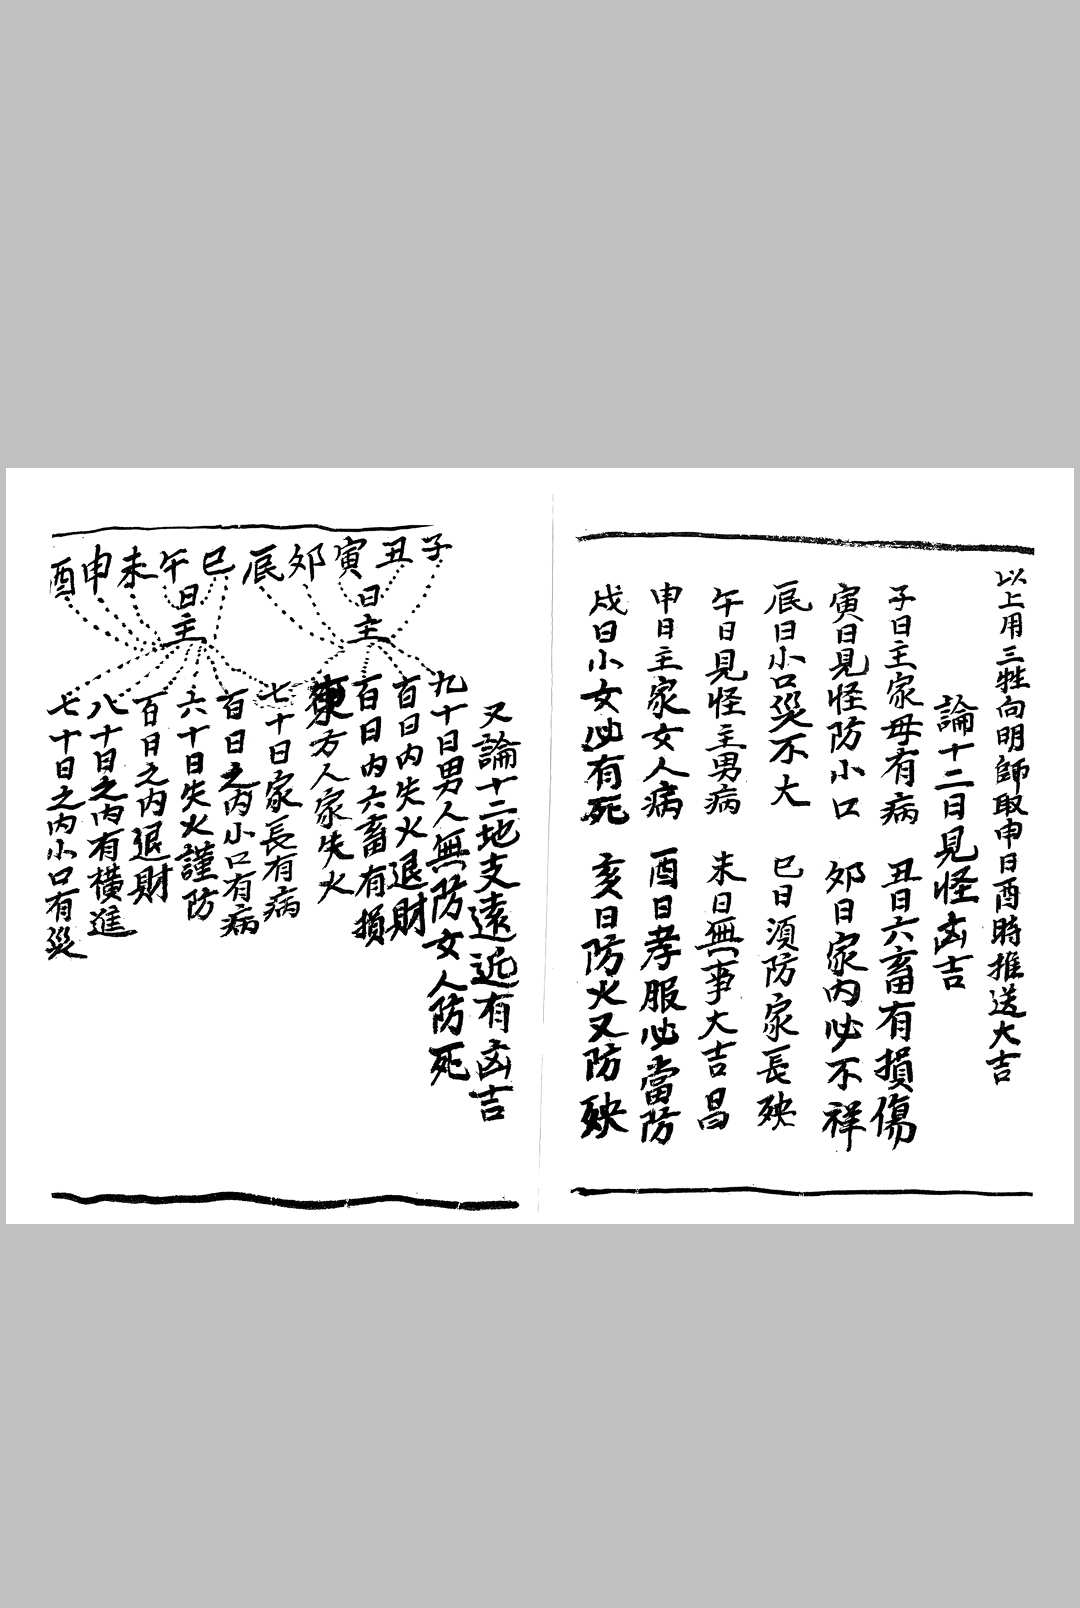 以上用三牲向明師取申日酉時推送大吉
論十二日見怪凶吉
子日主家母有病
丑日六畜有損傷
寅日見怪防小口
卯日家内必不祥
辰日小口災不大
巳日須防家長殃
午日見怪主男病
未日無事大吉昌
申日主家女人病
酉日孝服必當防
戌日小女必有死
亥日防火又防殃
又論十二地支遠近有凶吉
子丑寅卯辰巳午未申酉
日主
日主
九十日男人無防女人防死
百日内失火退財
百日内六畜有損
東方人家失火
七十日家長有病
百日之内小口有病
六十日失火謹防
百日之内退財
八十日之内有橫進
七十日之内小口有災